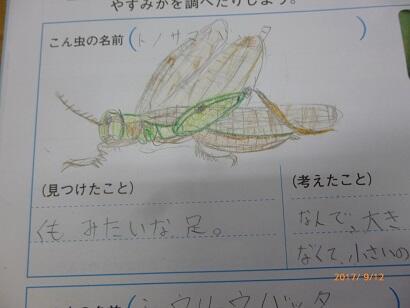 やすみかを調べたりしよう。
こん虫の名前（トノサマバ　）
(見つけたこと)
くもみたいな足。
(考えたこと)
なんで、大き
なくて、小さいの
2017/ 9/12
ショウリョウバッタ